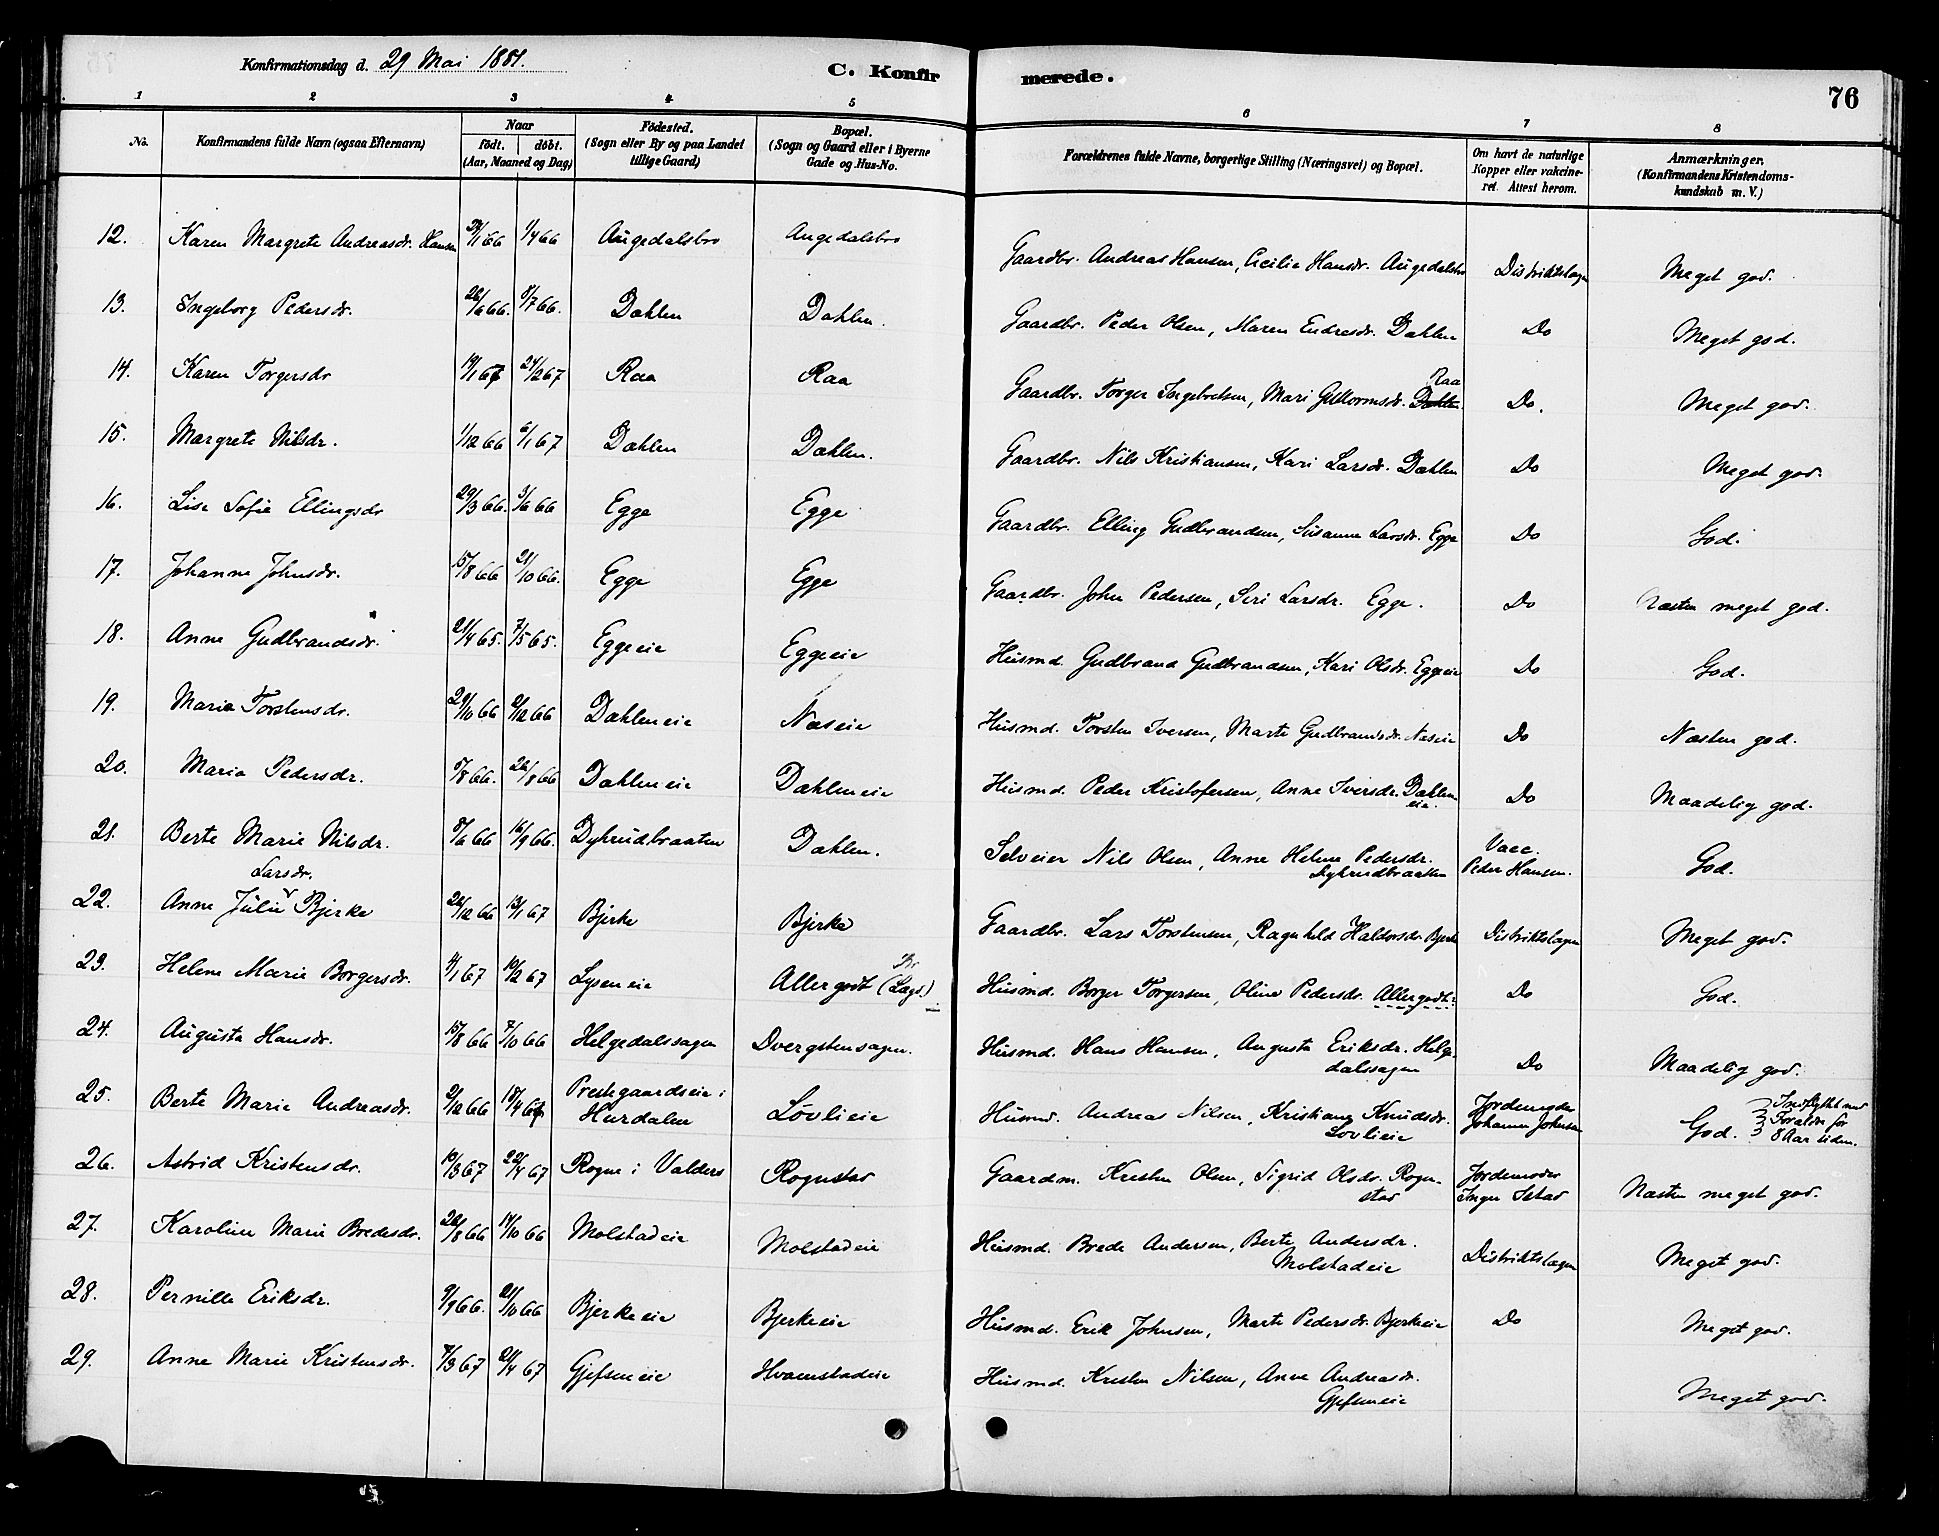 Konfirmationsdag d. 29 Mai 1881.
C. Konfirmerede.
76
1 2 3 4 5 6 7 8
No.
Konfirmandens fulde Navn (ogsaa Efternavn)
Naar født. døbt. (Aar, Maaned og Dag)
Fødested. (Sogn eller By og paa Landet tillige Gaard)
Bopæl. (Sogn og Gaard eller i Byerne Gade og Hus-No.
Forældrenes fulde Navne, borgerlige Stilling (Næringsvei) og Bopæl.
Om havt de naturlige Kopper eller vakcineret. Attest herom.
Anmærkninger. (Konfirmandens Kristendomskundskab m. V.)
12. Karen Margrete Andreasdr. Hansen 1/4 66 Augedalsbro Augedalsbro Gaardbr. Andreas Hansen, Cecilie Hansdr. Augedalsbro Distriktslægen Meget god.
13. Ingeborg Pedersdr. 22/6 66. 8/7 66. Dæhlen Dæhlen. Gaardbr. Peder Olsen, Maren Endresdr. Dæhlen Do Meget god.
14. Karen Torgersdr 19/1 67 24/2 67 Raa Raa Gaardbr. Torger Ingebretsen, Mari Guttormsdr. Raa Do. Meget god.
15. Margrete Nilsdr. 1/12 66 6/1 67 Dæhlen Dæhlen. Gaardbr. Nils Kristiansen, Kari Larsdr. Dæhlen Do Meget god.
16. Lise Sofie Ellingsdr 29/3 66. 3/6 66 Egge Egge Gaardbr. Elling Gudbrandsen, Susanne Larsdr. Egge Do God.
17. Johanne Johnsdr. 15/8 66 21/10 66. Egge Egge Gaardbr. John Pedersen, Siri Larsdr. Egge. Do Næsten meget god.
18. Anne Gudbrandsdr. 21/4 65. 7/5 65. Eggeeie Eggeeie Husmd. Gudbrand Gudbrandsen, Kari Olsdr. Eggeeie Do God.
19. Maria Torstensdr. 29/10 66 2/12 66 Dæhleneie Næseie Husmd. Torsten Iversen, Marte Gudbrandsdr. Næseie Do Næsten god.
20. Maria Pedersdr. 5/8 66. 26/8 66 Dæhleneie Dæhleneie Husmd. Peder Kristofersen, Anne Iversdr. Dæhleneie. Do Maadelig god.
21. Berte Marie Nilsdr. 8/6 66 16/9 66. Dyhrudbraaten Dæhlen. Selveier Nils Olsen, Anne Helene Pedersdr. Dyhrudbraaten Vacc. Peder Hansen. God.
22. Anne Julie Larsdr. Bjerke 22/12 66 13/1 67 Bjerke Bjerke Gaardbr. Lars Torstensen, Ragnhild Haldorsdr. Bjerke Distriktslægen Meget god.
23. Helene Marie Borgersdr. 4/1 67 10/2 67 Lyseneie Allergodt (Lægd.) Husmd. Borger Torgersen, Oline Pedersdr. Allergodt. Do God.
24. Augusta Hansdr. 15/8 66 7/10 66 Helgedalssagen Dvergstensagen. Husmd. Hans Hansen, Augusta Eriksdr. Helgedalssagen Do Maadelig god.
25. Berte Marie Andreasdr. 9/12 66 18/4 67 Prestegaardseie i Hurdalen Løvlieie Husmd. Andreas Nilsen, Kristiane Knudsdr. Løvlieie Jordemoder Johanne Johnsen God. Indflyttet med Forældre for 8 Aar siden.
26. Astrid Kristensdr. 10/3 67 22/4 67 Rogne i Valders Rognstad Gaardm. Kristen Olsen, Sigrid Olsdr. Rognstad Jordemoder Inger Istad Næsten meget god.
27. Karoline Marie Bredesdr. 22/8 66 14/10 66 Molstadeie Molstadeie Husmd. Brede Andersen, Berte Andersdr. Molstadeie Distriktslægen Meget god.
28. Pernille Eriksdr. 9/9 66. 21/10 66 Bjerkeeie Bjerkeeie Husmd. Erik Johnsen, Marte Pedersdr. Bjerkeeie Do Meget god.
29. Anne Marie Kristensdr. 7/3 67 21/4 67 Gjefseneie Hvamstadeie Husmd. Kristen Nilsen, Anne Andreasdr. Gjefseneie Meget god.